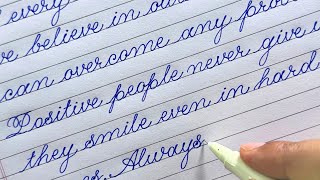 every
believe in our
can overcome any pro
Positive people never give u
they smile even in hard
es. Always